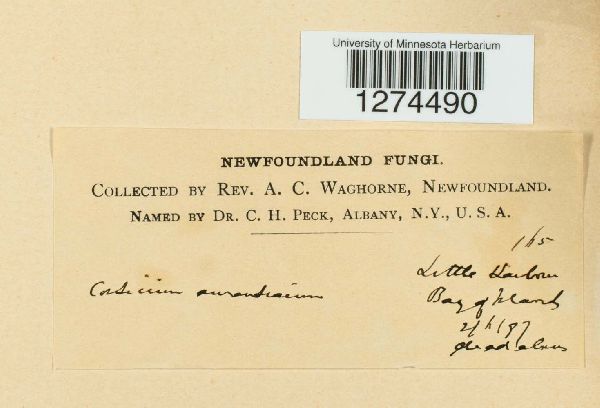 University of Minnesota Herbarium
1274490
NEWFOUNDLAND FUNGI.
COLLECTED BY REV. A. C. WAGHORNE, NEWFOUNDLAND.
NAMED BY DR. C. H. PECK, ALBANY, N.Y., U. S. A.
165
Corticium aurantiacum
Little Harbour
Bay of Islands
dead alnus